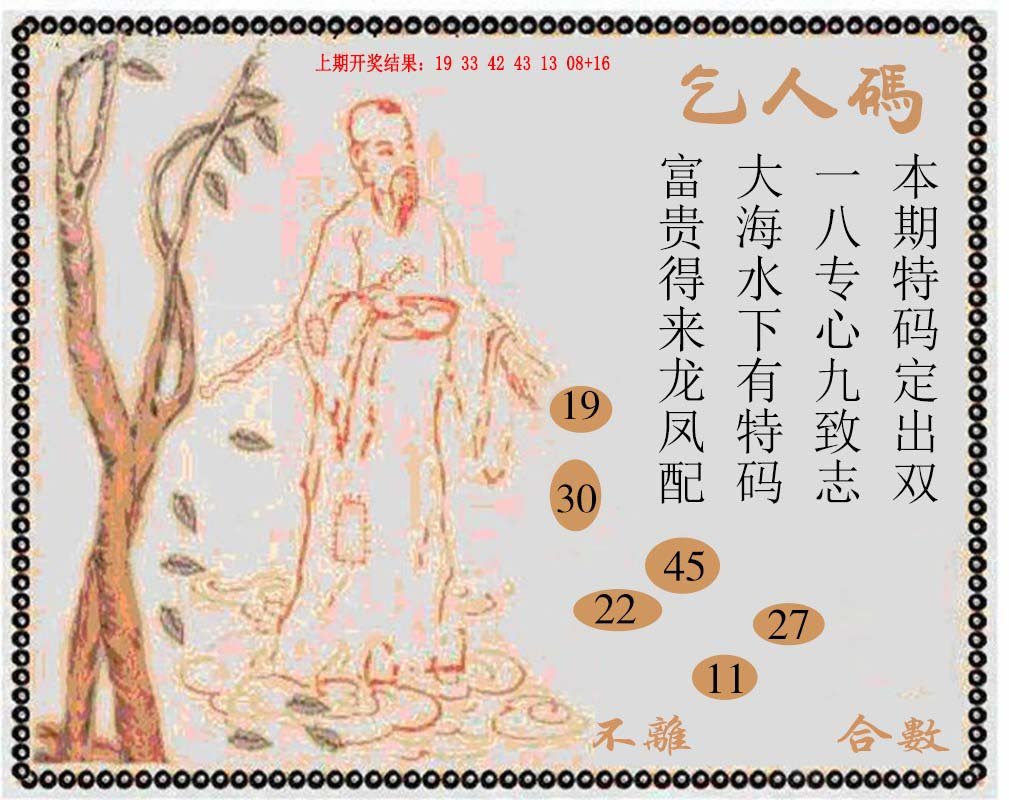 上期开奖结果：19 33 42 43 13 08+16
乞人碼
本期特码定出双
一八专心九致志
大海水下有特码
富贵得来龙凤配
19
30
45
22
27
11
不離 合數